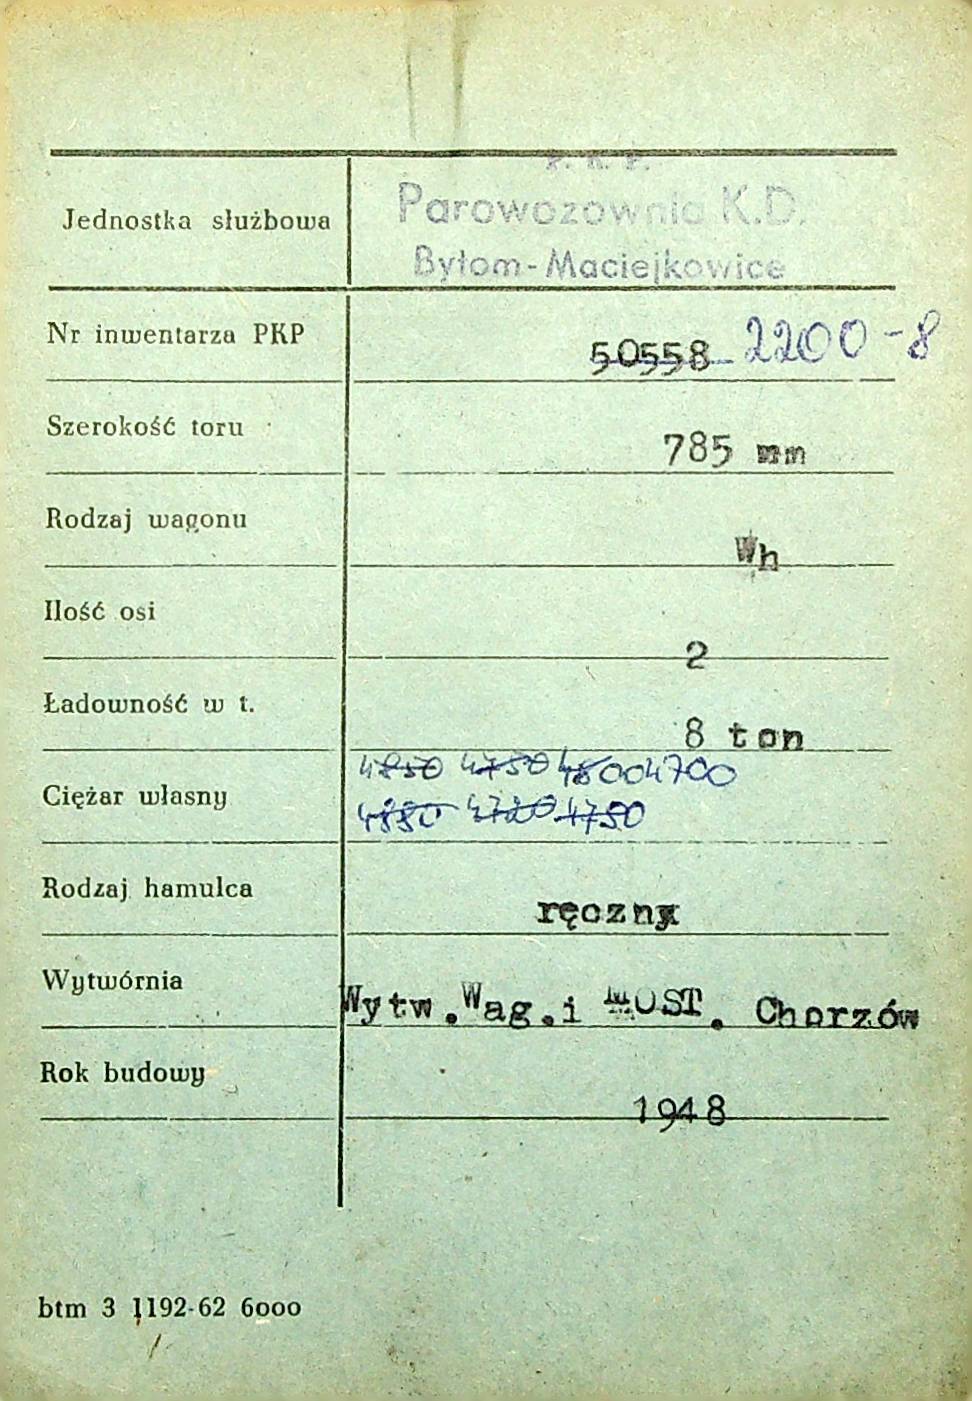 P. K. P.
Parowozownia K.D.
Bytom-Maciejkowice
Jednostka służbowa
Nr inwentarza PKP 50558 2200-8
Szerokość toru 785 mm
Rodzaj wagonu Wh
Ilość osi 2
Ładowność w t. 8 ton
4850 4750 4800 4700
Ciężar własny
4880 4720 4750
Rodzaj hamulca ręczny
Wytwórnia Wytw.Wag.i MOST. Chorzów
Rok budowy 1948
btm 3 1192-62 6000